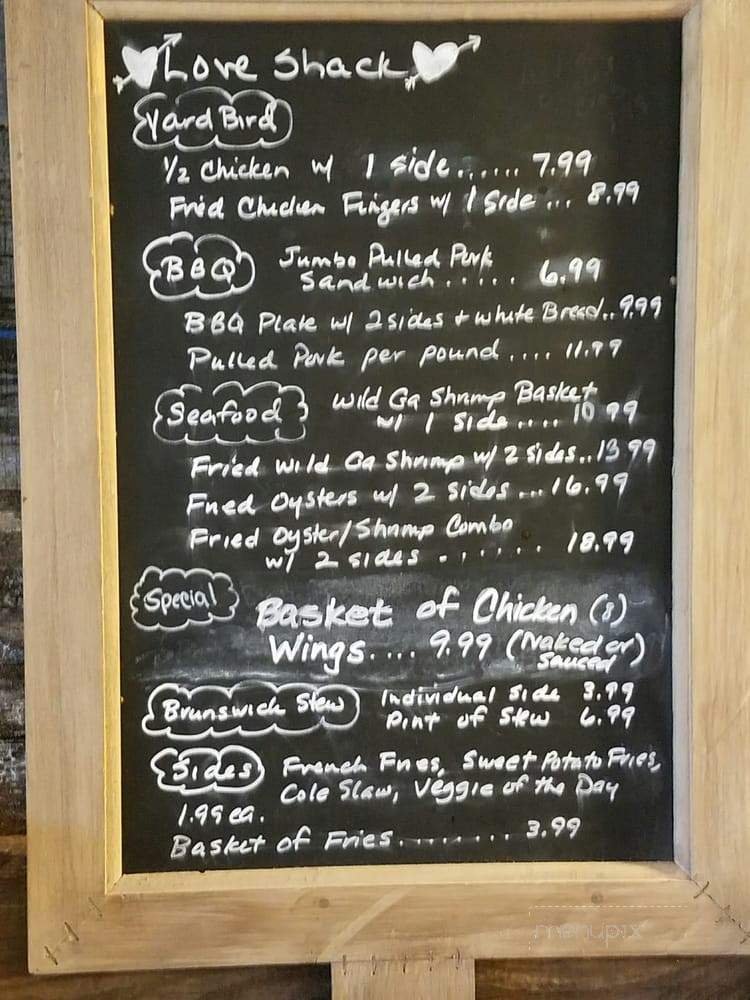 Love Shack
Yard Bird
1/2 Chicken w/ 1 side...... 7.99
Fried Chicken Fingers w/ 1 Side... 8.99
BBQ Jumbo Pulled Pork
Sandwich..... 6.99
BBQ Plate w/ 2 sides + white Bread.. 9.99
Pulled Pork per pound.... 11.99
Seafood Wild Ga Shrimp Basket
w/ 1 Side.... 10 99
Fried Wild Ga Shrimp w/ 2 sides.. 13 99
Fried Oysters w/ 2 sides... 16.99
Fried Oyster/Shrimp Combo
w/ 2 sides ...... 18.99
Special Basket of Chicken (8)
Wings.... 9.99 (Naked or)
Sauced
Brunswick Stew Individual side 3.99
Pint of Stew 6.99
Sides French Fries, Sweet Potato Fries,
Cole Slaw, Veggie of the Day
1.99 ea.
Basket of Fries......... 3.99
menupix